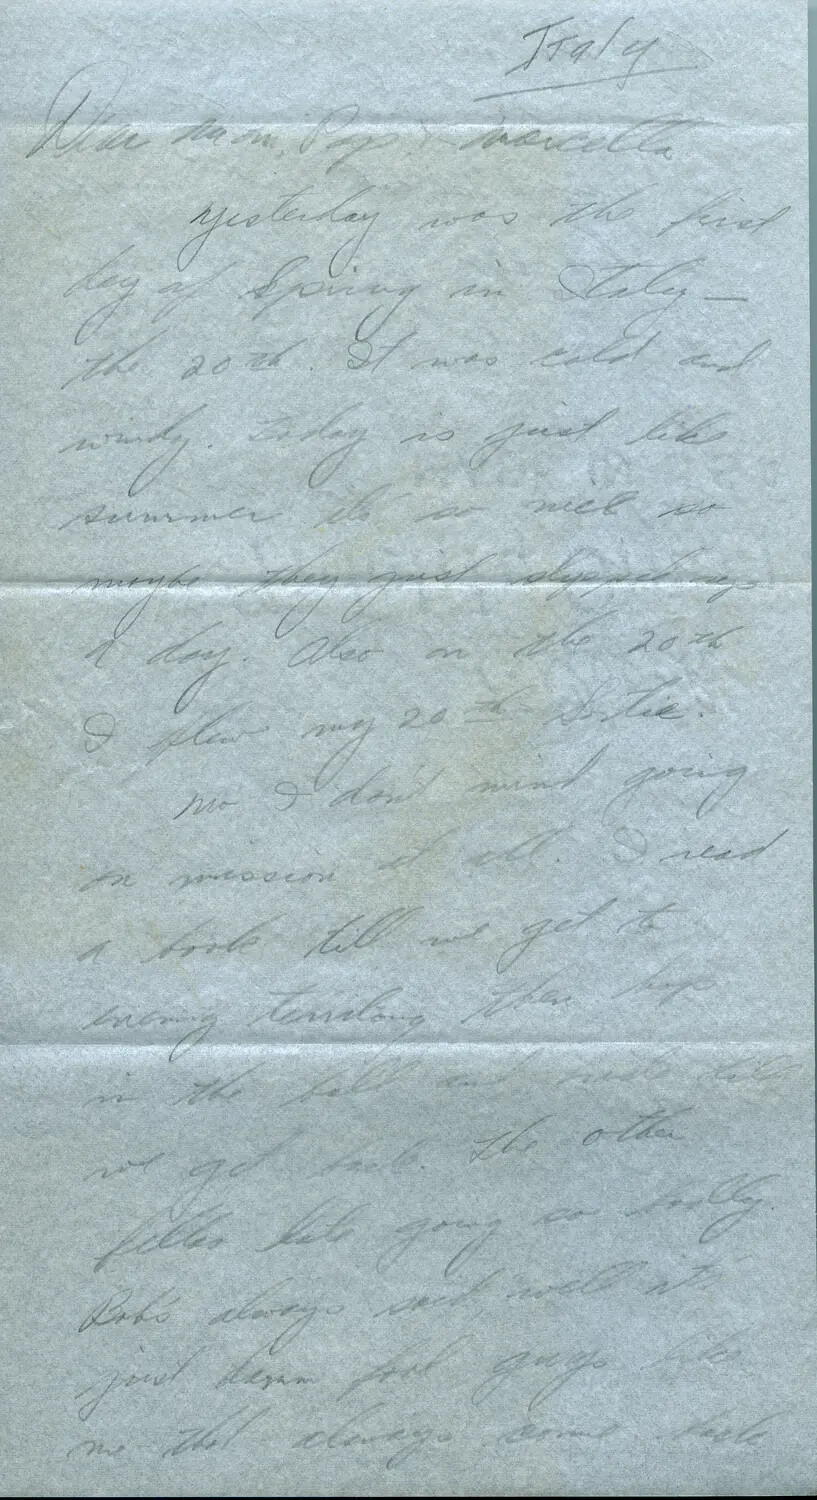 Italy
Dear Mom, Pop & Marcella
Yesterday was the first
day of Spring in Italy —
the 20th. It was cold and
windy. Today is just like
summer its so nice so
maybe they just slipped up
a day. Also on the 20th
I flew my 20th Sortie.
No I don't mind going
on mission at all. I read
a book till we get to
enemy territory then hop
in the ball and till
we get back. The other
fellas hate going so badly.
Bob's always said, well it's
just damn fool guys like
me that always come back